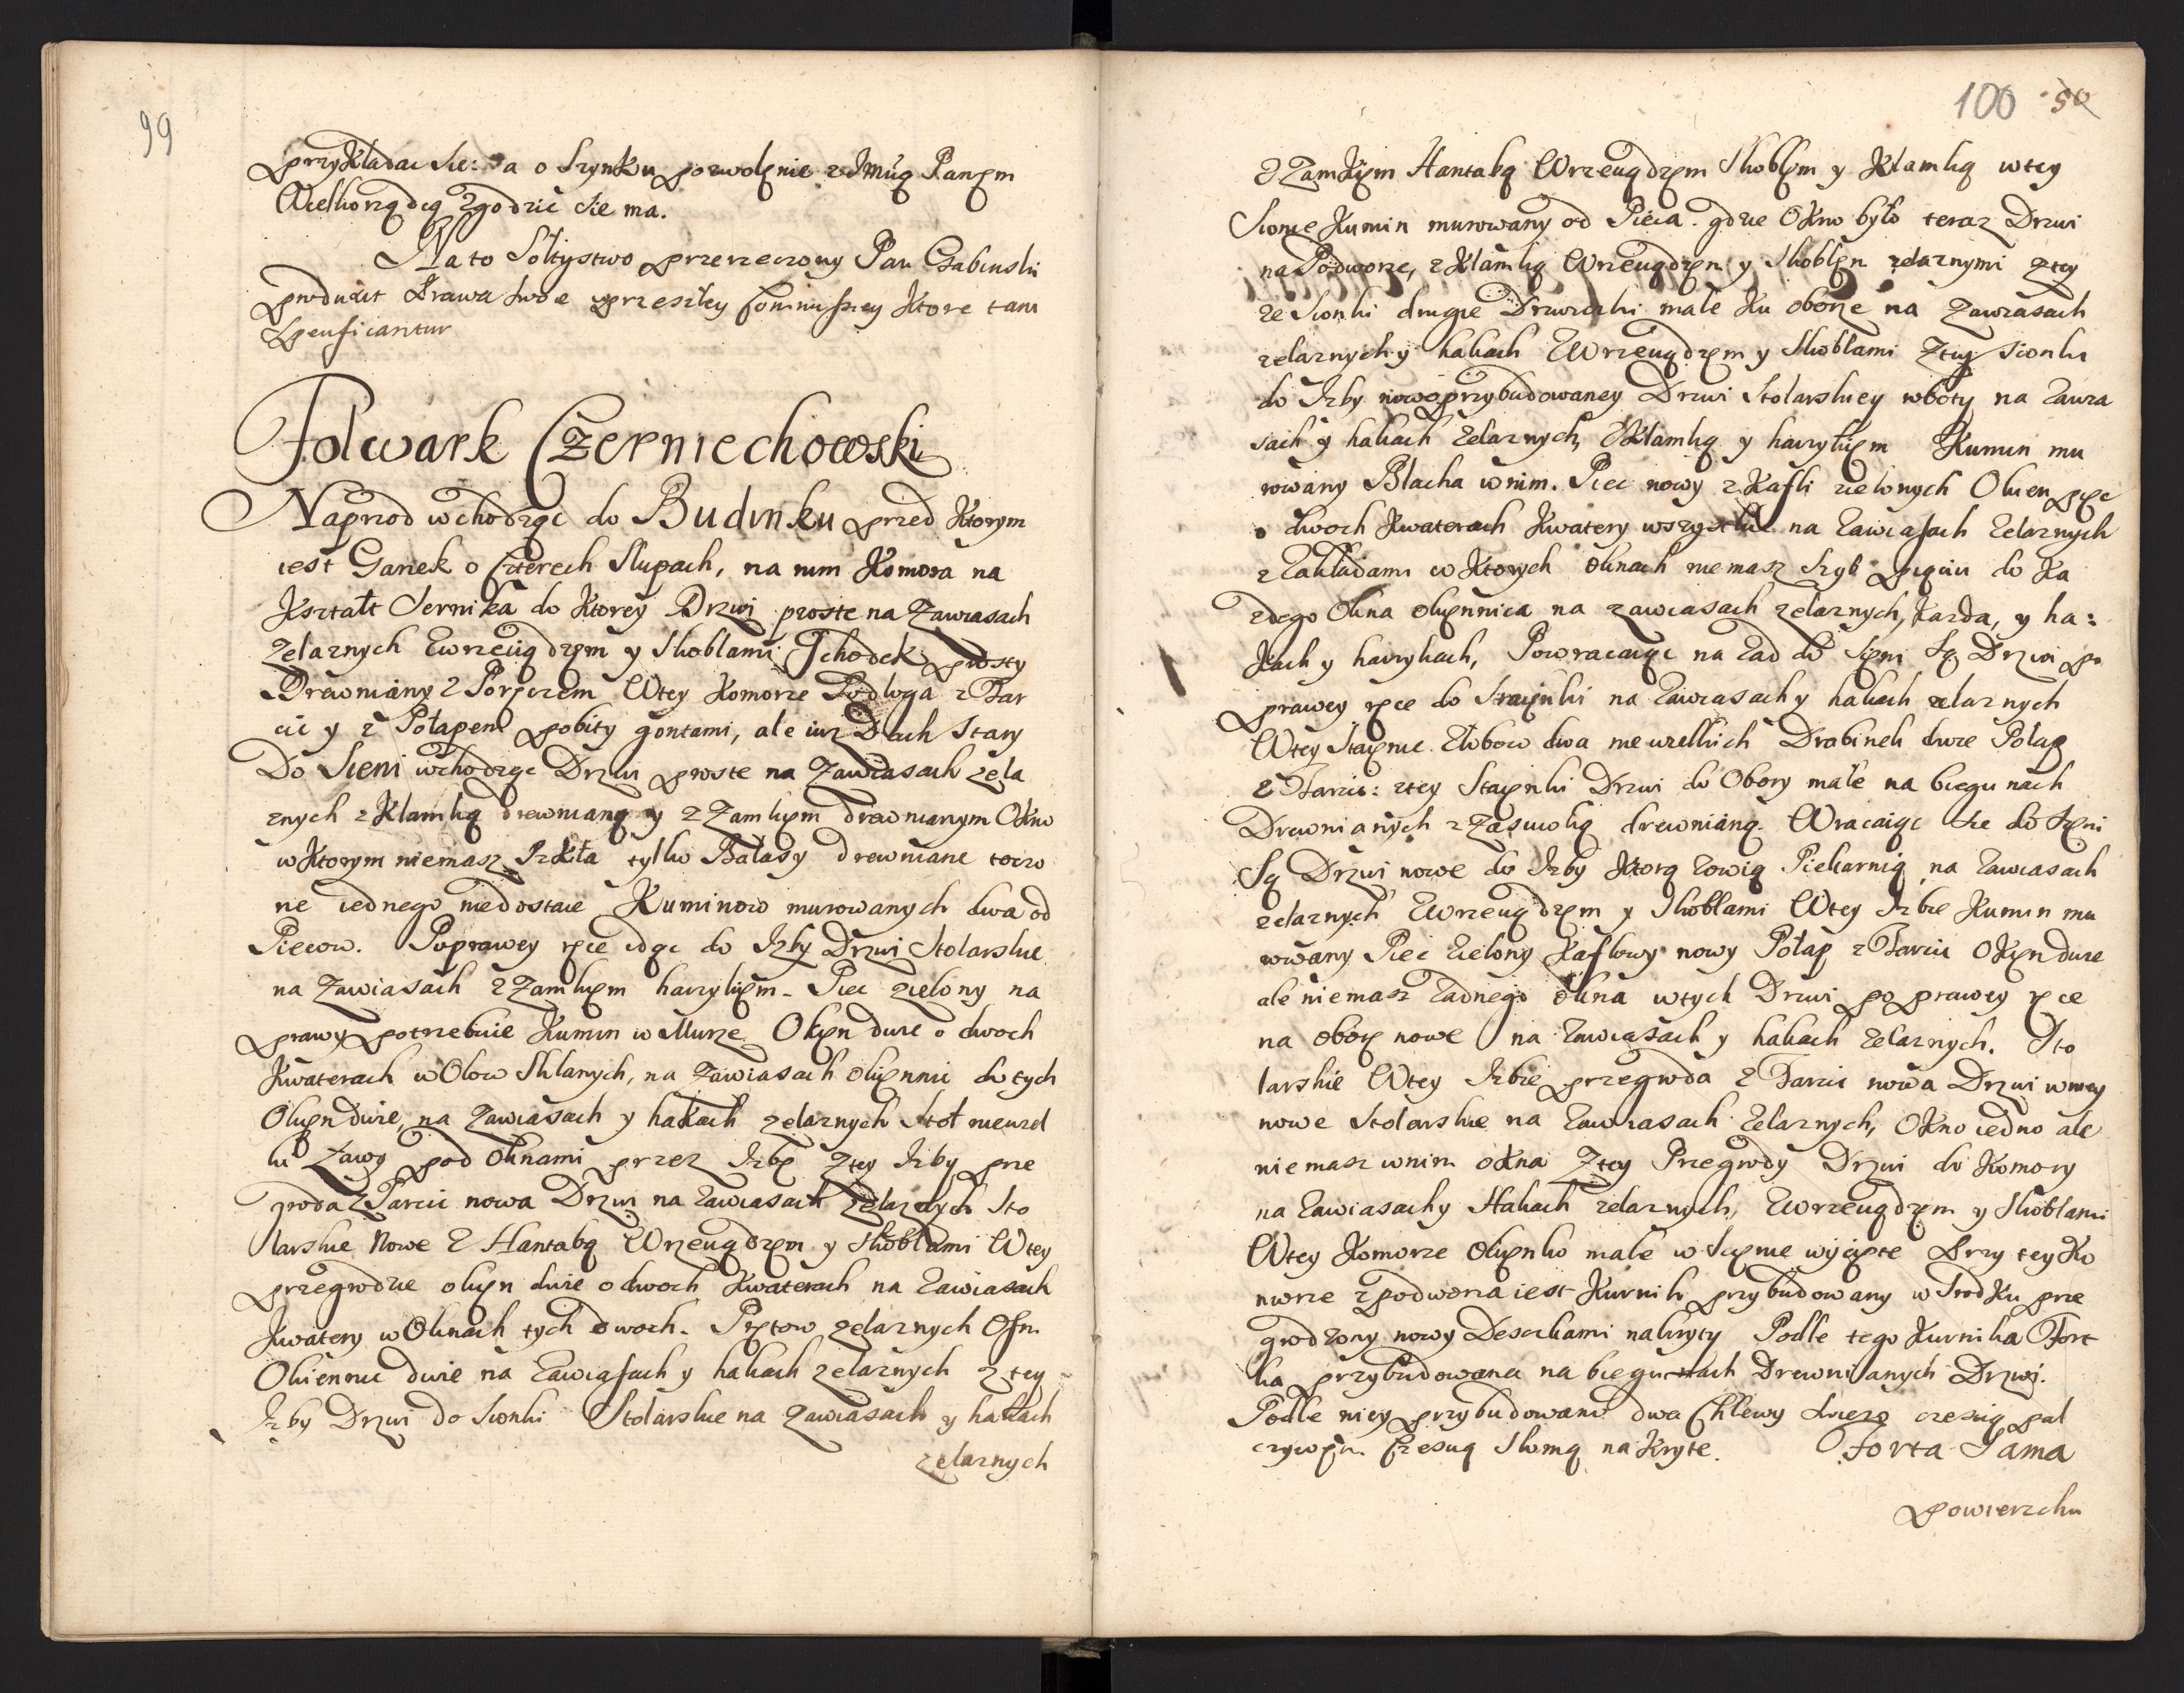 99
przykładac sie: a o szynku pozwolęnie z Jmcią Panęm
Wielkorządcą zgodzić sie ma.
Na to Sołtystwo przerzeczony Pan Gabinski
produxit Prawa swoie w przeszłey Commissiey Ktore tam
specificantur
Folwark Czerniechowski
Naprzod wchodząc do Budinku przed Ktorym
iest Ganek o Czterech Słupach, na nim Komora na
Kształt Sernika do Ktorey Drzwi proste na Zawiasach
Zelaznych z wrzeciądzem y Skoblami Schodek prosty
Drewniany z Poręczem W tey Komorze Podłoga z Tar
cic y z Połapem pobity gontami, ale iuz Dach Stary
Do Sieni wchodząc Drzwi proste na Zawiasach zela
znych z Klamką drewnianą y z Zamkięm drewnianym Okno
w Ktorym niemasz Szkła tylko Balasy drewniane toczo
ne iednego niedostaie Kuminow murowanych dwa od
Piecow. Po prawey ręce idąc do Izby Drzwi Stolarskie
na Zawiasach z Zamkięm haczykięm Piec zielony na
prawy potrzebuie Kumin w Murze Okęn dwie o dwoch
Kwaterach w Ołow Sklanych, na Zawiasach okięnnic do tych
Okięn dwie, na Zawiasach y hakach zelaznych Stoł niewiel
ki Zawy pod Oknami przez Izbę Z tey Izby prze
groda z Tarcic nowa Drzwi na Zawiasach zelaznych Sto
larskie Nowe z Hantabą Wrzeciądzem y Skoblami W tey
przegrodzie okięn dwie o dwoch Kwaterach na Zawiasach
Kwatery w Oknach tych dwoch. Prętow zelaznych Ośm
Okiennic dwie na Zawiasach y hakach zelaznych z tey
Izby Drzwi do Sionki Stolarskie na Zawiasach y hakach
zelaznych
100 50
z Zamkięm Hantabą Wrzeciądzem Skoblęm y Klamką w tey
Sionce Kumin murowany od Pieca. gdzie Okno było teraz Drzwi
na Podworze, z Klamką Wrzeciądzem y Skoblęm zelaznymi z tey
ze Sionki drugie Drzwiczki małe Ku oborze na Zawiasach
zelaznych y hakach z Wrzeciądzem y Skoblami Z tey Sionki
do Izby nowo przybudowaney Drzwi Stolarskiey roboty na Zawia
sach y hakach Zelaznych, z Klamką y haczykięm Kumin mu
rowany Blacha w nim. Piec nowy z Kafli zielonych Okien pięc
o dwoch Kwaterach Kwatery wszystkie na Zawiasach Zelaznych
z Zakładami w Ktorych oknach niemasz Szyb pięciu do Ka
zdego Okna okięnnica na zawiasach zelaznych, Kazda, y ha:
kach y haczykach, Powracaiąc na Zad do Sięni Są Drzwi po
prawey ręce do Stayięnki na Zawiasach y hakach zelaznych
W tey Stayięnce Złobow dwa niewielkich Drabinek dwie Połap
z Tarcic: z tey Stayięnki Drzwi do Obory małe na biegunach
Drewnianych z Zasuwką drewnianą. Wracaiąc sie do Sięni
Są Drzwi nowe do Izby Ktorą Zowią Piekarnią na Zawiasach
zelaznych z Wrzeciądzem y Skoblami W tey Izbie Kumin mu
rowany Piec Zielony Kaflowy nowy Połap z Tarcic Okięn dwie
ale niemasz Zadnego okna w tych Drzwi po prawey ręce
na oborę nowe na Zawiasach y hakach Zelaznych. Sto
larskie W tey Izbie przegroda z Tarcic nowa Drzwi w niey
nowe Stolarskie na Zawiasach Zelaznych, Okno iedno ale
niemasz w nim okna Z tey Przegrody Drzwi do Komory
na Zawiasach y Hakach zelaznych, z Wrzeciądzem y Skoblami
W tey Komorze Okięnko małe w Scięnie wycięte Przy tey Ko
morze z podworza iest Kurnik przybudowany w Srodku prze
grodzony nowy Desczkami nakryty Podle tego Kurnika Fort
ka przybudowana na biegunach Drewnianych Drzwi.
Podle niey przybudowane dwa Chlewy swiezo czescią pal
czywęm Czescią Słomą na Kryte. Forta Sama
powierzchu